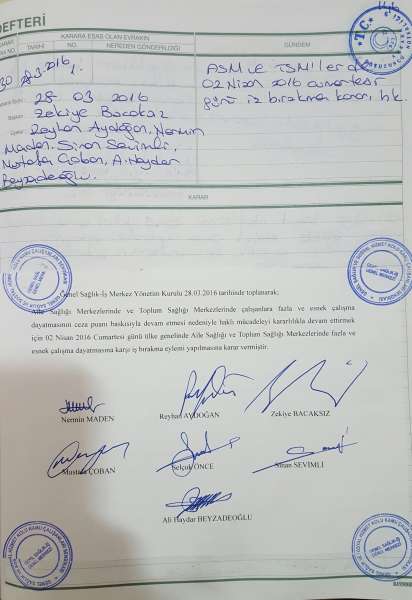 DEFTERİ
KARARA ESAS OLAN EVRAKIN
TARİHİ NO. NEREDEN GÖNDERİLDİĞİ GÜNDEM
30 28.3.2016
28 03 2016
Zekiye Bacaksız
Reyhan Aydoğan, Nermin
Maden, Sinan Sevimli,
Mustafa Çoban, A. Haydar
Beyzadeoğlu.
ASM ve TSM'lerde
02 Nisan 2016 cumartesi
günü iş bırakma kararı hk.
KARAR
Genel Sağlık-İş Merkez Yönetim Kurulu 28.03.2016 tarihinde toplanarak;
Aile Sağlığı Merkezlerinde ve Toplum Sağlığı Merkezlerinde çalışanlara fazla ve esnek çalışma
dayatmasının ceza puanı baskısıyla devam etmesi nedeniyle haklı mücadeleyi kararlılıkla devam ettirmek
için 02 Nisan 2016 Cumartesi günü ülke genelinde Aile Sağlığı ve Toplum Sağlığı Merkezlerinde fazla ve
esnek çalışma dayatmasına karşı iş bırakma eylemi yapılmasına karar vermiştir.
Nermin MADEN Reyhan AYDOĞAN Zekiye BACAKSIZ
Mustafa ÇOBAN Selçuk ÖNCE Sinan SEVİMLİ
Ali Haydar BEYZADEOĞLU